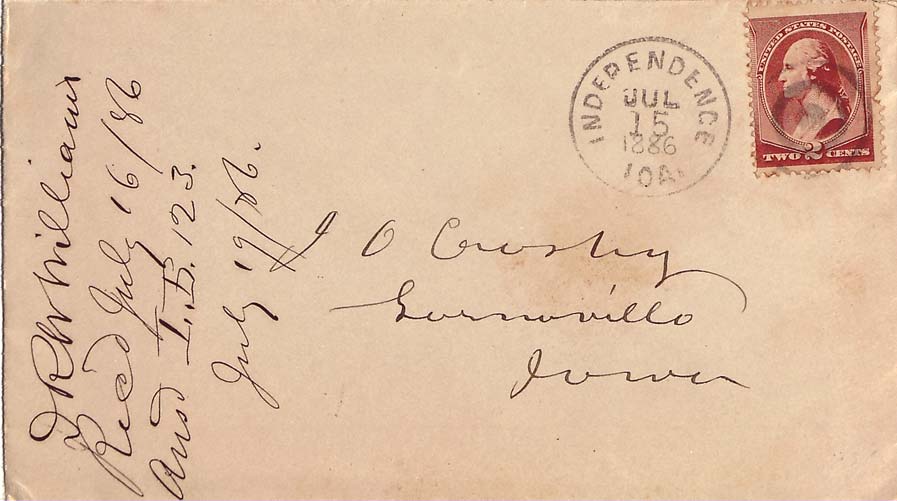 INDEPENDENCE
JUL
15
1886
IOA.
UNITED STATES POSTAGE
TWO 2 CENTS
J O Crosby
Garnavillo
Iowa
Williams
Recd July 16/86
Ansd L.B. 123.
July 19/86.